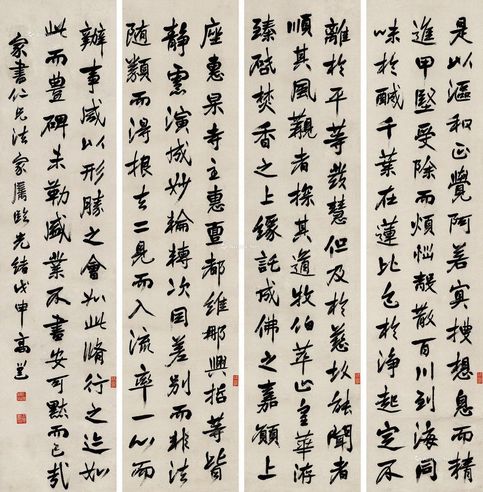 是以漚和正覺阿若冥搜想息而精
進甲堅受除而煩惱殺散百川到海同
味於醎千葉在蓮比色於淨起定不
離於平等發慧但及於慈故能聞者
順其風觀者探其道牧伯萃止皇華游
臻啓焚香之上緣託成佛之嘉願上
座惠杲寺主惠亶都維那興哲等皆
靜慮演成妙輪轉次因差別而非法
随類而得根去二見而入流率一心而
辦事咸以形勝之會如此脩行之迹如
此而豊碑未勒盛業不書安可黙而已哉
家書仁兄法家屬臨光緒戊申高邕